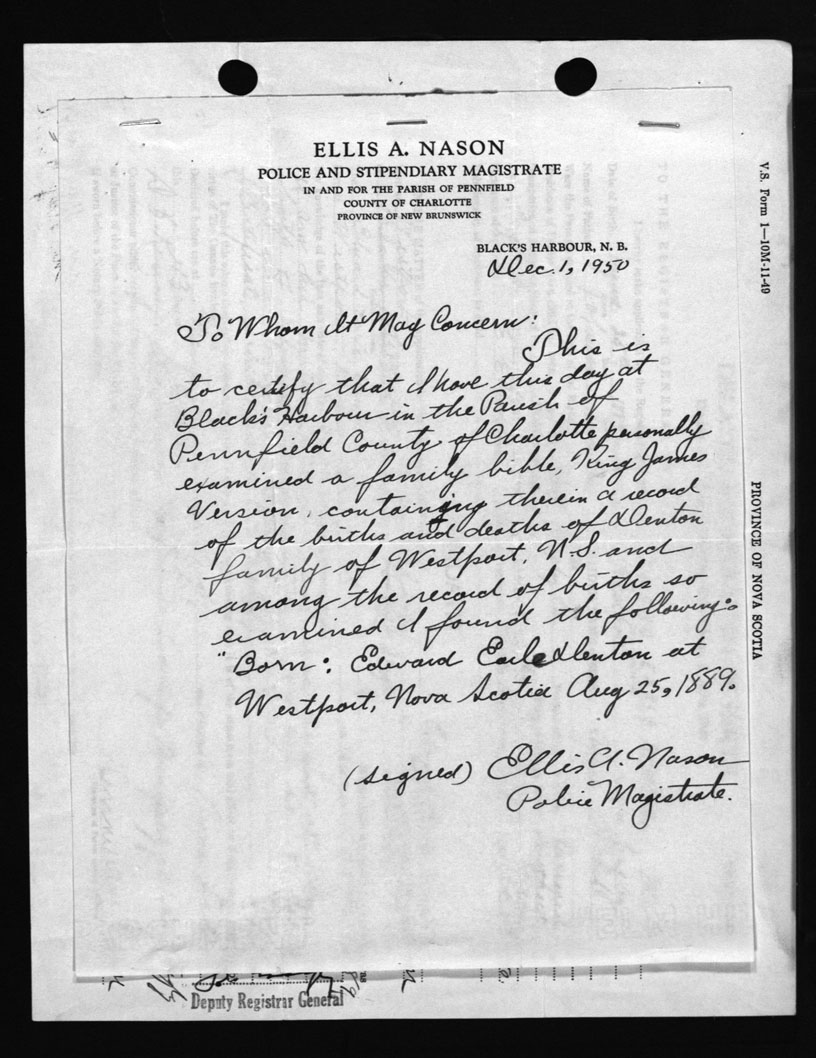 ELLIS A. NASON
POLICE AND STIPENDIARY MAGISTRATE
IN AND FOR THE PARISH OF PENNFIELD
COUNTY OF CHARLOTTE
PROVINCE OF NEW BRUNSWICK
BLACK'S HARBOUR, N. B.
Dec. 1, 1950
To Whom It May Concern:
This is
to certify that I have this day at
Black's Harbour in the Parish of
Pennfield County of Charlotte personally
examined a family bible, King James
Version, containing therein a record
of the births and deaths of Denton
family of Westport, N.S. and
among the record of births so
examined I found the following:
"Born: Edward Earle Denton at
Westport, Nova Scotia Aug 25, 1889.
(signed) Ellis A. Nason
Police Magistrate.
V.S. Form 1—10M-11-49
PROVINCE OF NOVA SCOTIA
Deputy Registrar General